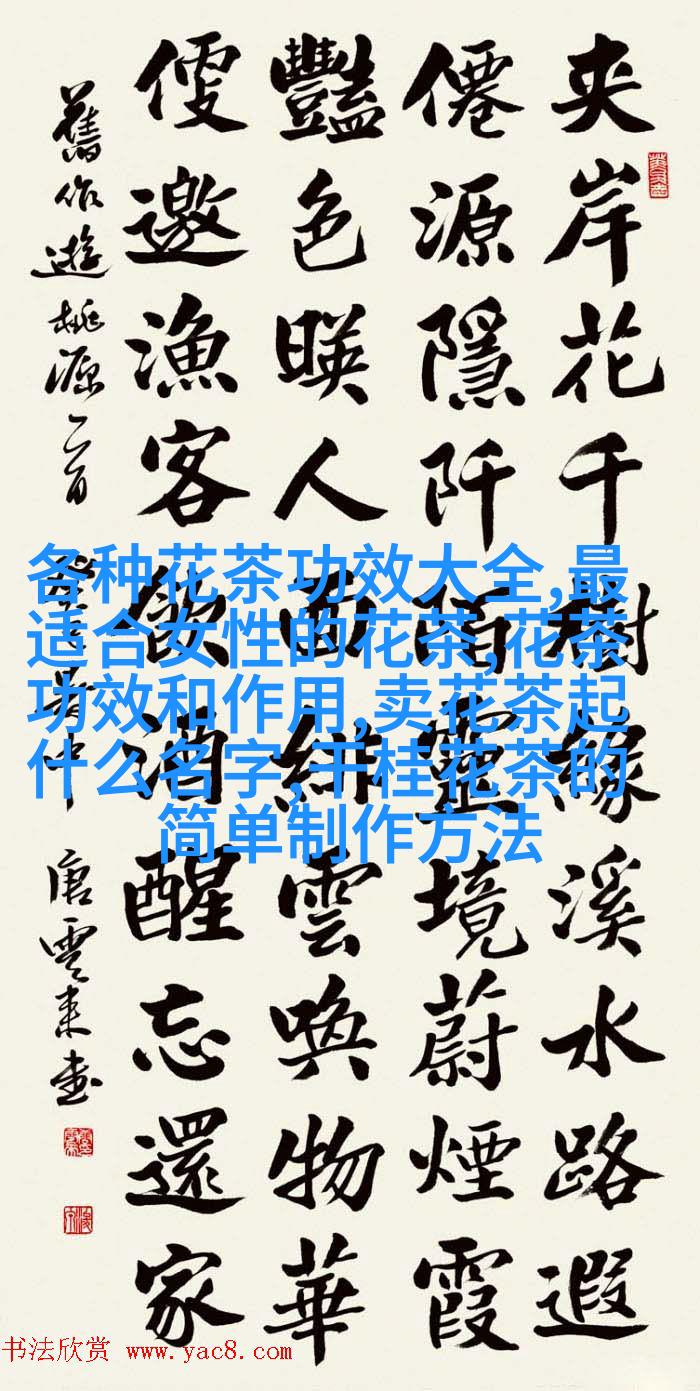 夹岸花千樹緣溪水路遐
僊源隱阡陌靈境蔚煙霞
豔色暎人面緋雲喚物華
便邀漁客飲酒醒忘還家
舊作遊桃源二首
唐雲来書
各种花茶功效大全,最
适合女性的花茶,花茶
功效和作用,卖花茶起
什么名字,干桂花茶的
简单制作方法
书法欣赏 www.yac8.com